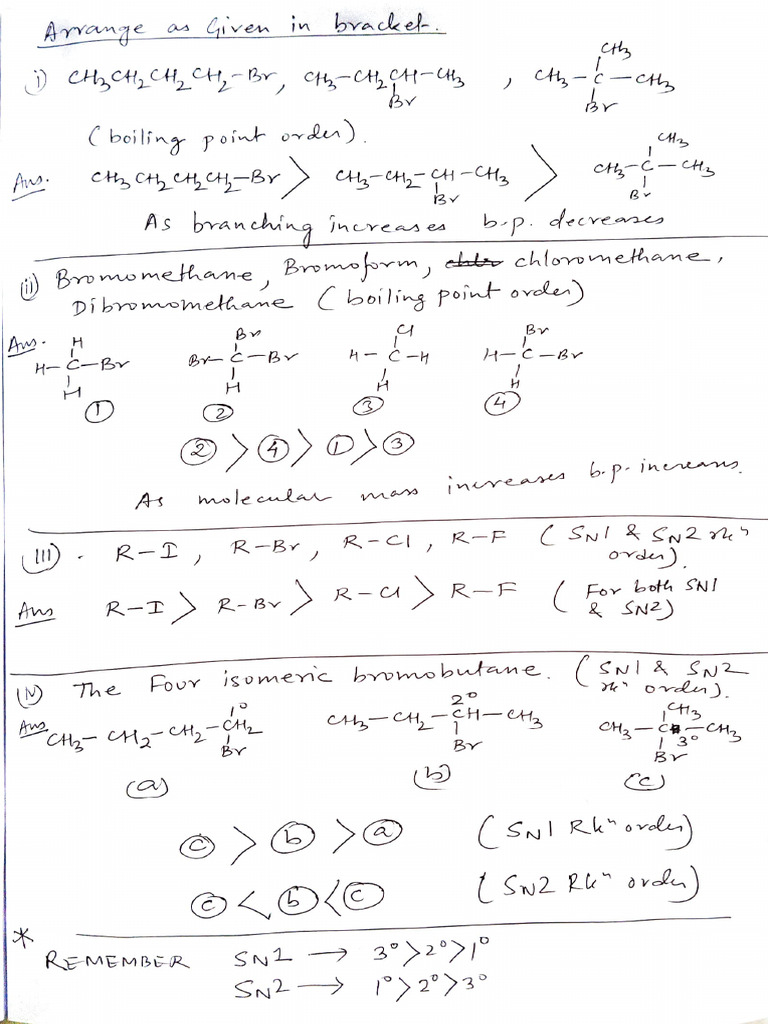 Arrange as Given in bracket.
i) CH3CH2CH2CH2-Br, CH3-CH2CH-CH3, CH3-C-CH3
Br
CH3
Br
(boiling point order).
Ans. CH3CH2CH2CH2-Br > CH3-CH2-CH-CH3 > CH3-C-CH3
Br
CH3
Br
As branching increases b.p. decreases
(ii) Bromomethane, Bromoform, chloromethane,
Dibromomethane (boiling point order)
Ans.
H Br Cl Br
H-C-Br Br-C-Br H-C-H H-C-Br
H H H H
① ② ③ ④
② > ④ > ① > ③
As molecular mass increases b.p. increases.
(III). R-I, R-Br, R-Cl, R-F (SN1 & SN2 rkn
order).
Ans R-I > R-Br > R-Cl > R-F (For both SN1
& SN2)
(IV) The Four isomeric bromobutane. (SN1 & SN2
rkn order).
Ans
1° 2° CH3
CH3-CH2-CH2-CH2 CH3-CH2-CH-CH3 CH3-C-CH3
3°
Br Br Br
(a) (b) (c)
ⓒ > ⓑ > ⓐ (SN1 Rkn order)
ⓒ < ⓑ < ⓒ (SN2 Rkn order)
*
REMEMBER SN1 → 3°>2°>1°
SN2 → 1°>2°>3°